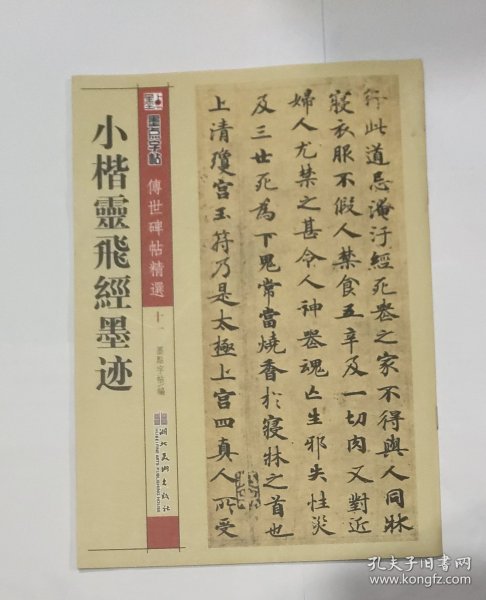 小楷靈飛經墨迹
墨点字帖
傳世碑帖精選
十一
墨點字帖/編
湖北美術出版社
行此道忌淹汙經死喪之家不得與人同牀
寢衣服不假人禁食五辛及一切肉又對近
婦人尤禁之甚令人神喪魂亡生邪失性災
及三世死為下鬼常當燒香於寢牀之首也
上清瓊宮玉符乃是太極上宮四真人所受
孔夫子旧书网
www.kongfz.com